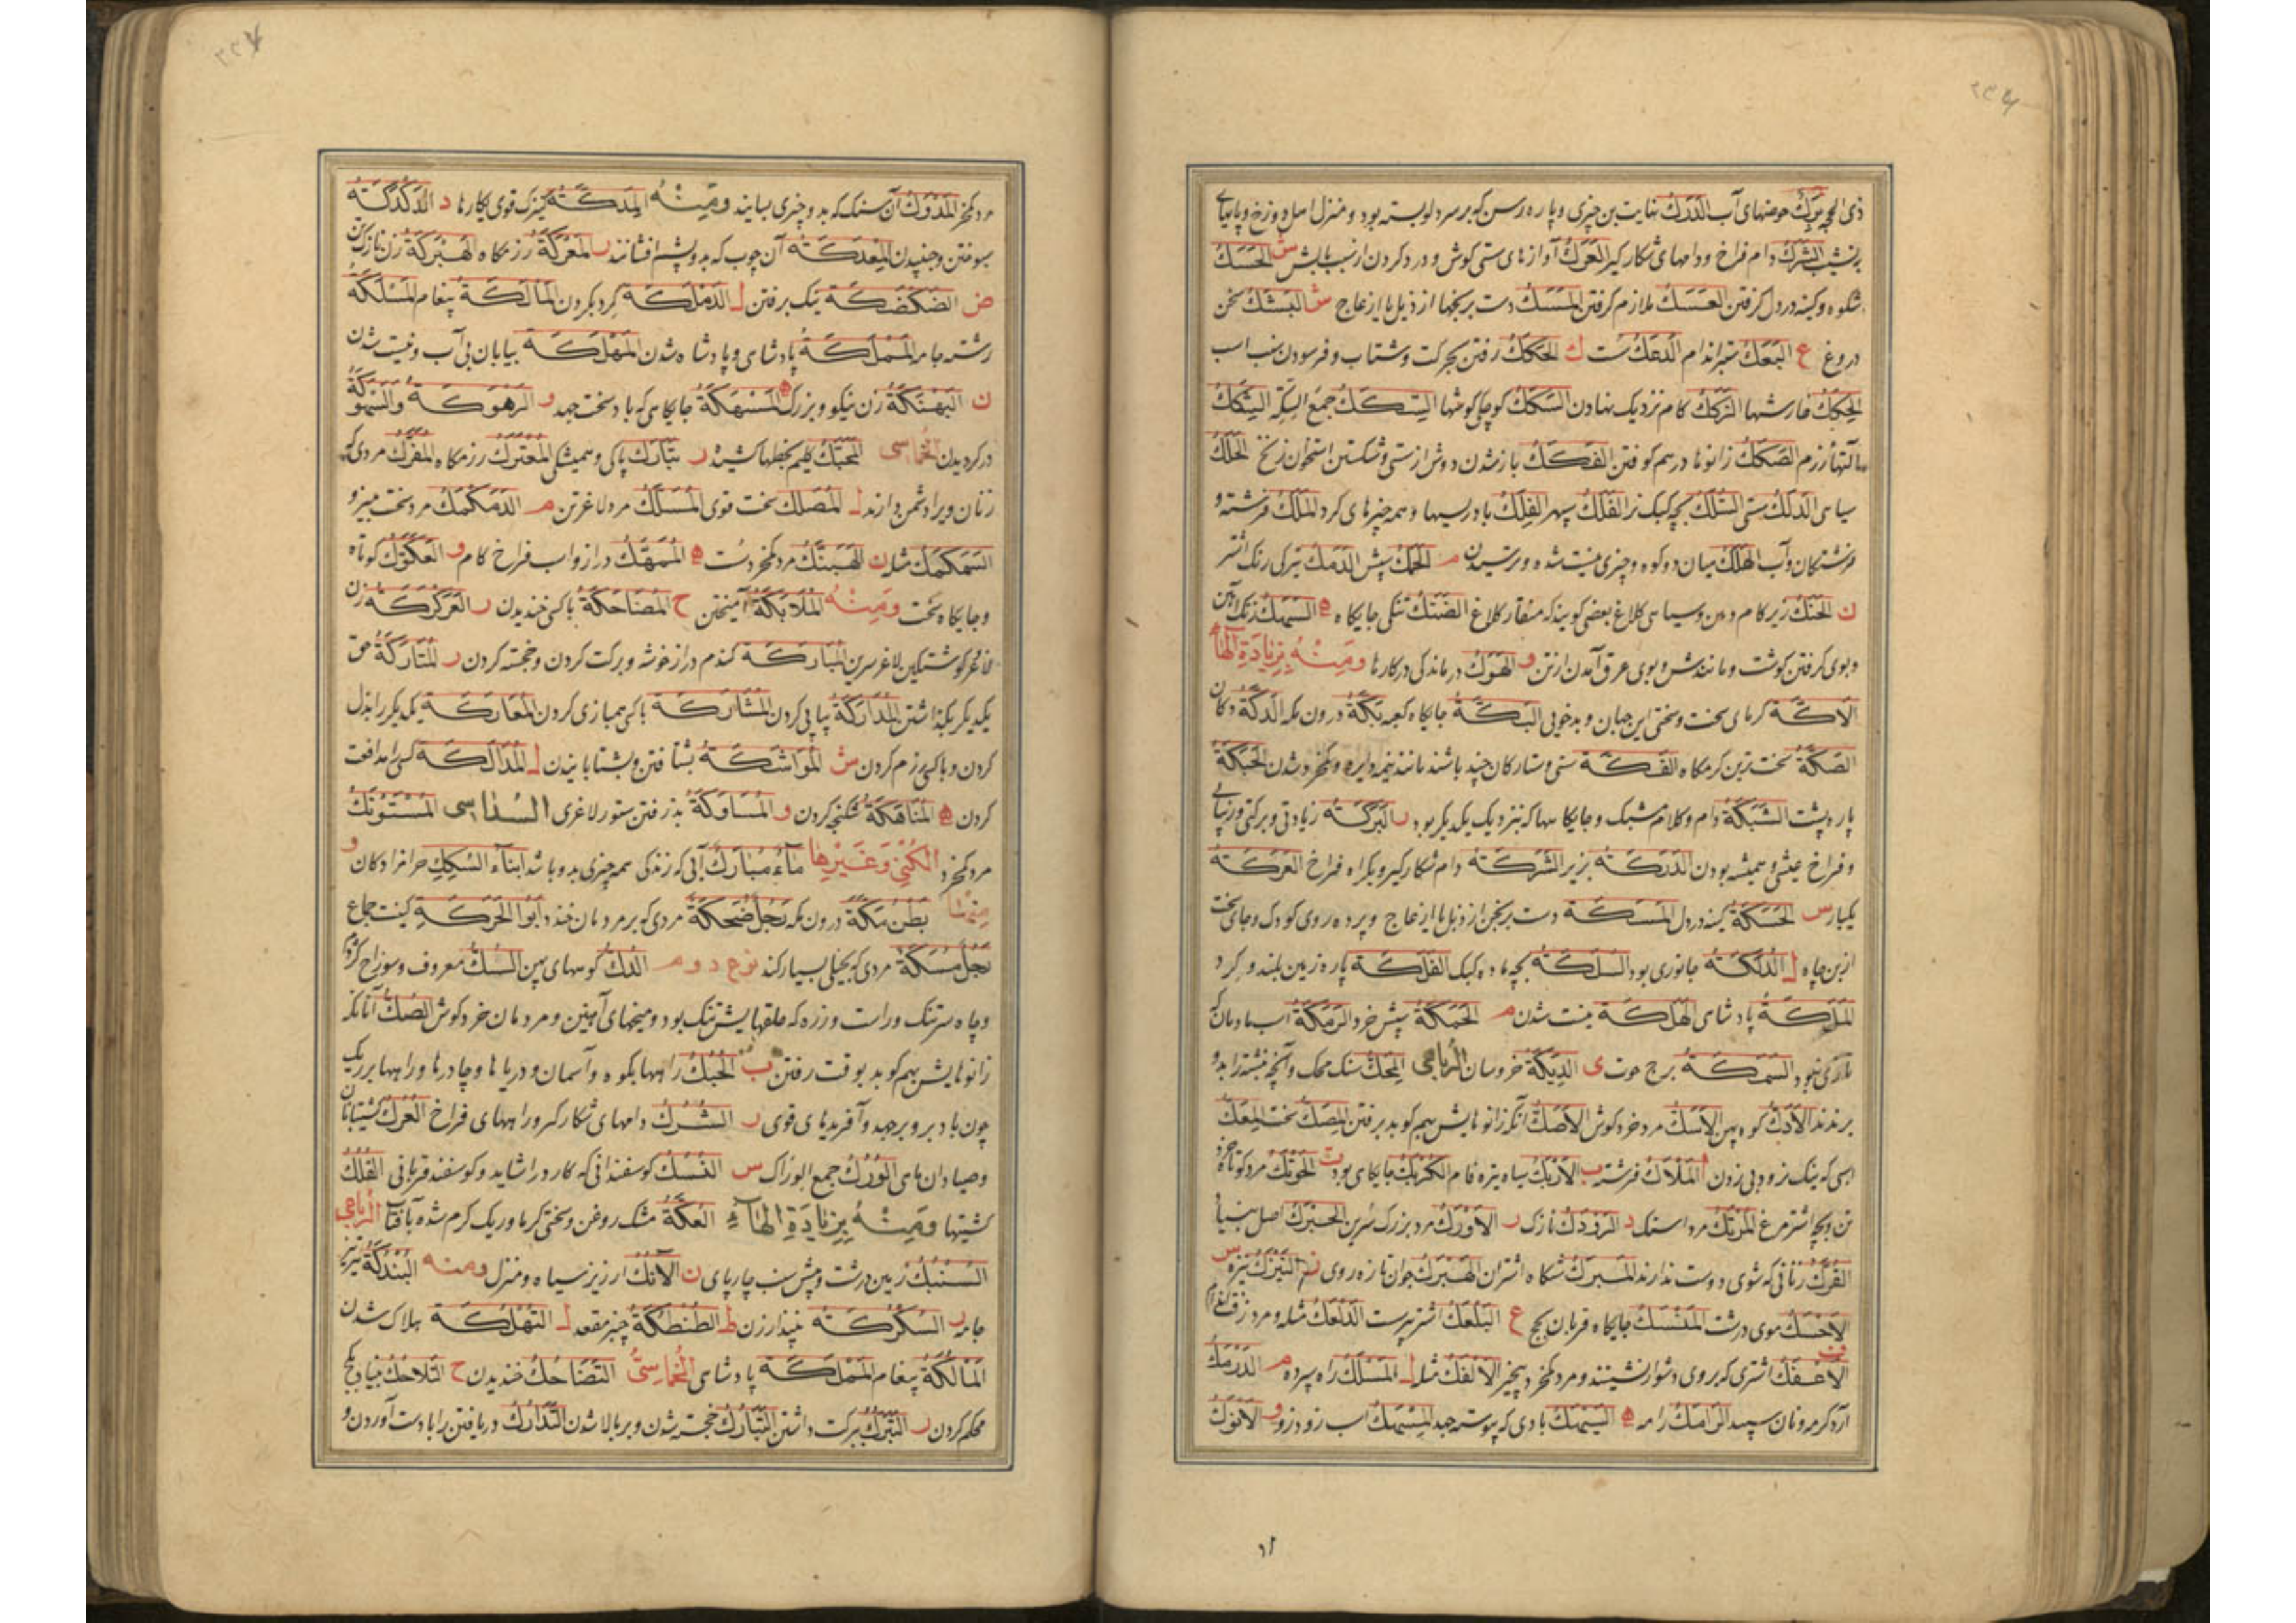 ذی الحجه بُرَك حوضهای آب الدَّرَك نهایت بن چیزی و پاره رسن که بر سر دلو بسته بود و منزل اهل دوزخ و پایهای
بنشیب الشَّرَك دام فراخ و دامهای شکارگیر العَرَك آوازهای ستی کوش و درد کردن از نیب بالش س الحَسَك
شکوه و کینه در دل گرفتن العَسَك ملازم گرفتن المَسَك دست برنجها از ذبل یا از عاج ش البَشَك سخن
دروغ ع البَعَك ستبر اندام الدَّعَك سُت ك الحَكَك رفتن بحرکت و شتاب و فرسودن سنب اسب
الحِكَك خارشها الرَّكَك کام نزدیک نهادن السَّكَك کوچک گوشها السِّكَك جمع السِّكَّة الشِّكَك
سآلتهاء رزم الصَّكَك زانوها در هم کوفتن الفَكَك باز شدن دوش از سستی و شکستن استخوان زنخ الحَلَك
سیاهی الدَّلَك سستی السُّلَك بچه کبک نر الفَلَك سپهر الفِلَك بادریسها و همه چیزهای گرد المَلَك فرشته و
فرشتگان و آب الهَلَك میان دو کوه و چیزی نیست شده و ترسیدن م الحَمَك سپش الدَّمَك تیرگی رنگ اشتر
ن الحَنَك زیر کام دهن و سیاهی کلاغ بعضی گویند که منقار کلاغ الضَّنَك تنگی جایگاه ه السَّهَك زنگ آهن
و بوی گرفتن گوشت و مانندش و بوی عرق آمدن از تن و الهَوَك درماندگی در کارها ومنه بزیادة الهاء
الأَكَّة گرمای سخت و سختی این جهان و بدخویی البَكَّة جایگاه کعبه بَكَّة درون مکه الدَّكَّة دکان
الصَّكَّة سخت ترین گرمگاه الفَكَّة سستی و ستارگان چند باشد مانند نیمه دایره و کم خرد شدن الحَبَكَة
پاره پشت الشَّبَكَة دام و کلام مشبک و جایگاهها که نزدیک یکدیگر بود ر البَرَكَة زیادتی و برکتی و زیبائی
و فراخ عیشی و همیشه بودن الدَّرَكَة بزیر الشَّرَكَة دام شکارگیر و یکراه فراخ العَرَكَة
یکبار س الحَسَكَة کینه در دل المَسَكَة دست برنجن از ذبل یا از عاج و پرده روی کودک و جای سخت
از بن چاه ل الدُّلَكَة جانوری بود السُّلَكَة بچه ماده کبک الفَلَكَة پاره زمین بلند و گرد
المَلَكَة پادشاهی الهَلَكَة نیست شدن م الحَمَكَة سپش خرد الرَّمَكَة اسب مادیان که
تازی نبود السَّمَكَة برج حوت ی الدِّيَكَة خروسان الرباعی المِحَكّ سنگ محک و آنچه نبشته را بدو
برندند الأَدَكّ کوه پهن الأَسَكّ مرد خرد گوش الأَصَكّ آنکه زانوهایش بهم کوبد برفتن المِصَكّ سخت المِعَكّ
اسبی که نیک نرود بی زدن أ المَلْأَك فرشته ب الأَرْبَك سیاه تیره فام الكَرْبَك جایگاهی بود ت الحَوْتَك مرد کوتاه خرد
تن و بچه اشترمرغ المَرْتَك مرداسنگ د الرَّوْدَك نازک ر الأَوْرَك مرد بزرگ سرین الحَبْرَك اصل بنیاد
الفُرَّك زنانی که شوی دوست ندارند المَبْرَك شگاه اشتران الهَبْرَك جوان تازه روی ز النَّيْزَك نیزه س
الأَحْسَك موی درشت المَنْسَك جایگاه قربان حج ع البَلْعَك اشتر پرست الدَّلْعَك مثله و مرد زفت
ف الأَعْفَك اشتری که بر وی دشوار نشینند و مرد کم خرد بی خیر الأَلْفَك مثله ل المَسْلَك راه سپرده م الدَّرْمَك
آرد گرمه و نان سپید الرَّامَك رامه ه السَّيْهَك بادی که پیوسته جهد المِسْهَك اسب زودرو و الأَنْوَك
مرد کم خرد المَدْوَك آن سنگ که بدو چیزی بسایند ومنه المِدَكَّة کنیزک قوی بکارها د الدَّكْدَكَة
بسوختن و جنبیدن المِعْدَكَة آن چوب که بدو پشم افشانند ر المَعْرَكَة رزمگاه الهَبْرَكَة زن نازک تن
ض الضَّكْضَكَة نیک برفتن ل الدَّمْلَكَة گرد بکردن المَأْلَكَة پیغام المَسْلَكَة
رشته جامه المَمْلَكَة پادشاهی و پادشاه شدن المَهْلَكَة بیابان بی آب و نیست شدن
ن البَهْنَكَة زن نیکو و بزرگ ه المَسْهَكَة جایگاهی که باد سخت جهد و الرَّهْوَكَة والسَّهْوَكَة
در گردیدن الخماسی المُحَبَّك گلیم بخطها کشیده ر تَبَارَك پاکی و همیشگی المُعْتَرَك رزمگاه المُفَرَّك مردی که
زنان ویرا دشمن دارند ل المُصَلَّك سخت قوی المُسَلَّك مرد لاغر تن م الدَّمَكْمَك مرد سخت نیرو
السَّمَكْمَك مثله ن الهَبَنَّك مرد کم خرد سُت ه المُمَهَّك دراز و اسب فراخ گام و العَكَوَّك کوتاه
و جایگاه سخت ومنه المُلَابَكَة آمیختن ح المُضَاحَكَة با کسی خندیدن ر العَرَكْرَكَة زن
فاخر گوشتگین لاغر سرین المُبَارَكَة گندم دراز خوشه و برکت کردن و خجسته کردن ر المُتَارَكَة حق
یکدیگر بگذاشتن المُدَارَكَة پیاپی کردن المُشَارَكَة با کسی همبازی کردن المُعَارَكَة یکدیگر را بذل
کردن و با کسی رزم کردن ش المُوَاشَكَة بشتافتن و بشتابانیدن ل المُدَالَكَة کسی را مدافعت
کردن ه المُنَاهَكَة شکنجه کردن و المُسَاوَكَة بد رفتن ستور لاغری السداسی المُسْتَوْنَك
مرد کم خرد الکنی وغیرها مَاءٌ مُبَارَك آبی که زندگی همه چیزی بدو باشد ابناء السِّكَك حرامزادگان و
منها بَطْن مَكَّة درون مکه رَجُلٌ ضُحَكَة مردی که بر مردمان خندد ابو الحَرَكَة کنیت جماع
رَجُلٌ مُسَكَة مردی که بخیلی بسیار کند نوع دوم الدُّكّ کوههای پهن السُّكّ معروف و سوراخ کژدم
و چاه سرتنگ و راست و زره که حلقهایش تنگ بود و میخهای آهنین و مردمان خرد گوش الصُّكّ آنانکه
زانوهایش بهم کوبد بوقت رفتن ب الحُبُك راهها بکوه و آسمان و دریاها و چادرها و راهها بر ریگ
چون باد برو برجهد و آفریدهای قوی ر الشُّرُك دامهای شکارگیر و راههای فراخ العُرُك کشتیبانان
و صیادان ماهی الوُرُك جمع الوراك س النُّسُك گوسفندانی که کارد را شاید و گوسفند قربانی الفُلُك
کشتیها ومنه بزیادة الهاء العُكَّة مشک روغن و سختی گرما و ریگ گرم شده بآفتاب الرباعی
السُّنْبُك زمین درشت و پیش سنب چارپای ن الآنُك ارزیز سیاه و منزل ومنه البُنْدُكَة تیریز
جامه ر السُّكْرُكَة نبیذ ارزن ط الطُّنْطُكَة چیز مقعد ل التَّهْلُكَة هلاک شدن
المَأْلُكَة پیغام المَمْلُكَة پادشاهی الخماسی التَّضَاحُك خندیدن ح التَّلَاحُك بنیاد بکج
محکم کردن ر التَّبَرُّك ببرکت داشتن التَّبَارُك خجسته شدن و بر بالا شدن التَّدَارُك دریافتن را بادست آوردن و